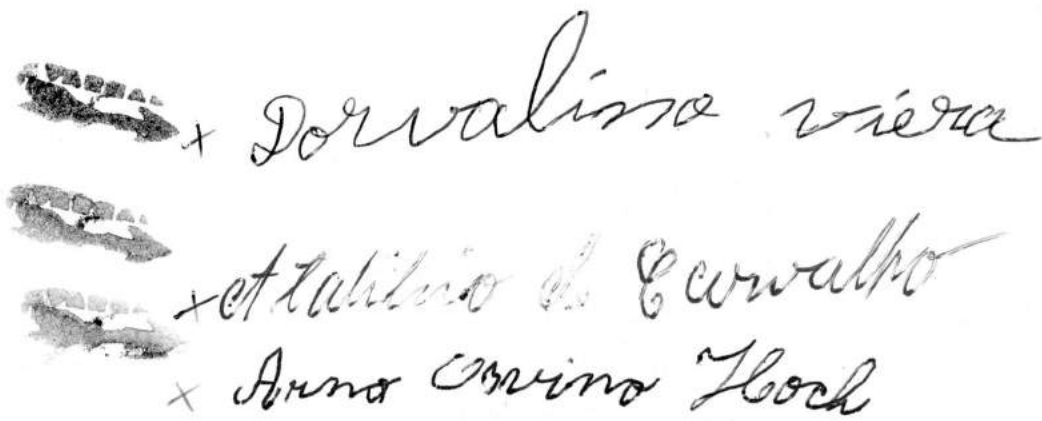 x Dorvalino viera
x Atalibio de Carvalho
x Arno Orvino Hoch